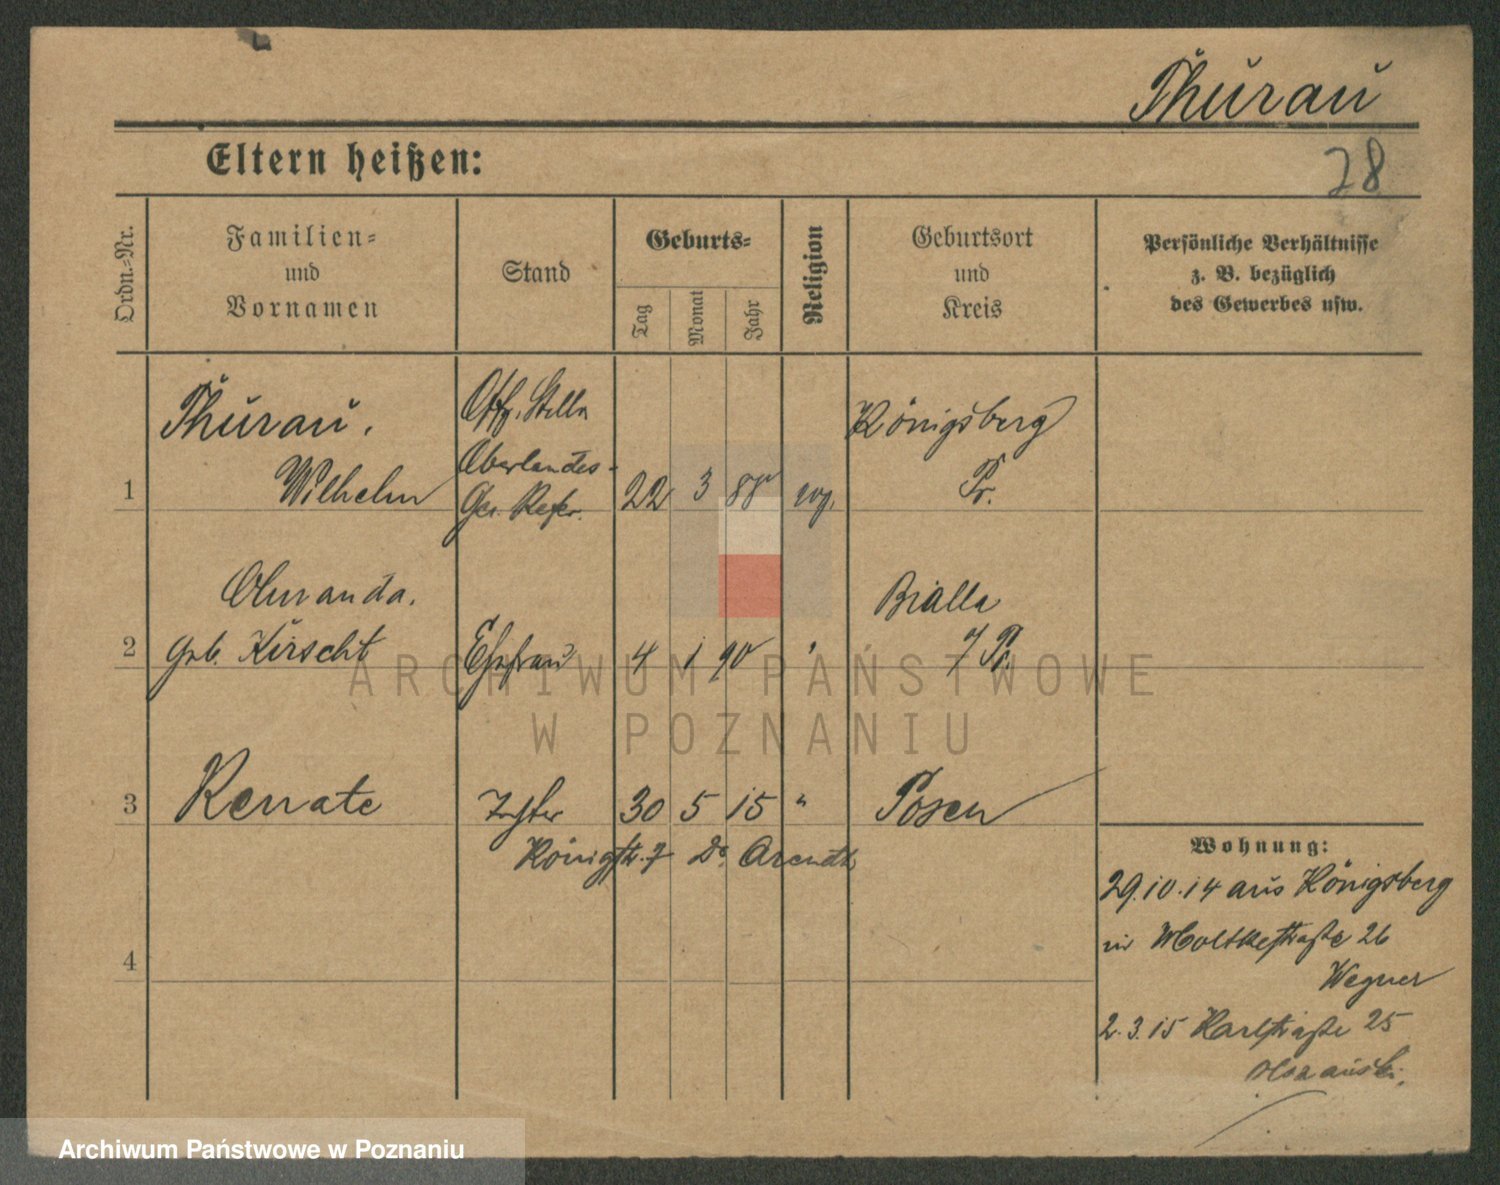 Thurau
28
Eltern heißen:
Ordn.-Nr.
Familien-
und
Vornamen
Stand
Geburts-
Tag
Monat
Jahr
Religion
Geburtsort
und
Kreis
Persönliche Verhältnisse
z. B. bezüglich
des Gewerbes usw.
Thurau,
Wilhelm
Offz. Stellv
Oberlandes-
Ger. Refer.
1
22 3 88 evg.
Königsberg
Pr.
2
geb. Kirscht
Ehefrau
4 1 90 "
Bialla
Pr.
3
Renate
Tochter
30 5 15 "
Posen
Königstr. 7 Dr. Arendt
4
Wohnung:
29.10.14 aus Königsberg
in Moltkestraße 26
Wegner
2.3.15 Karlstraße 25
ARCHIWUM PAŃSTWOWE
W POZNANIU
Archiwum Państwowe w Poznaniu